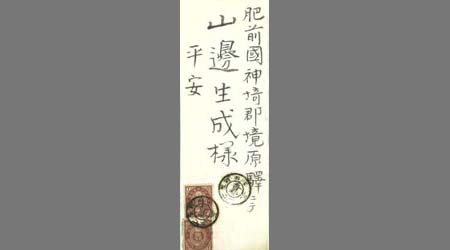 肥前國神埼郡境原驛ニテ
山邊生成様
平安